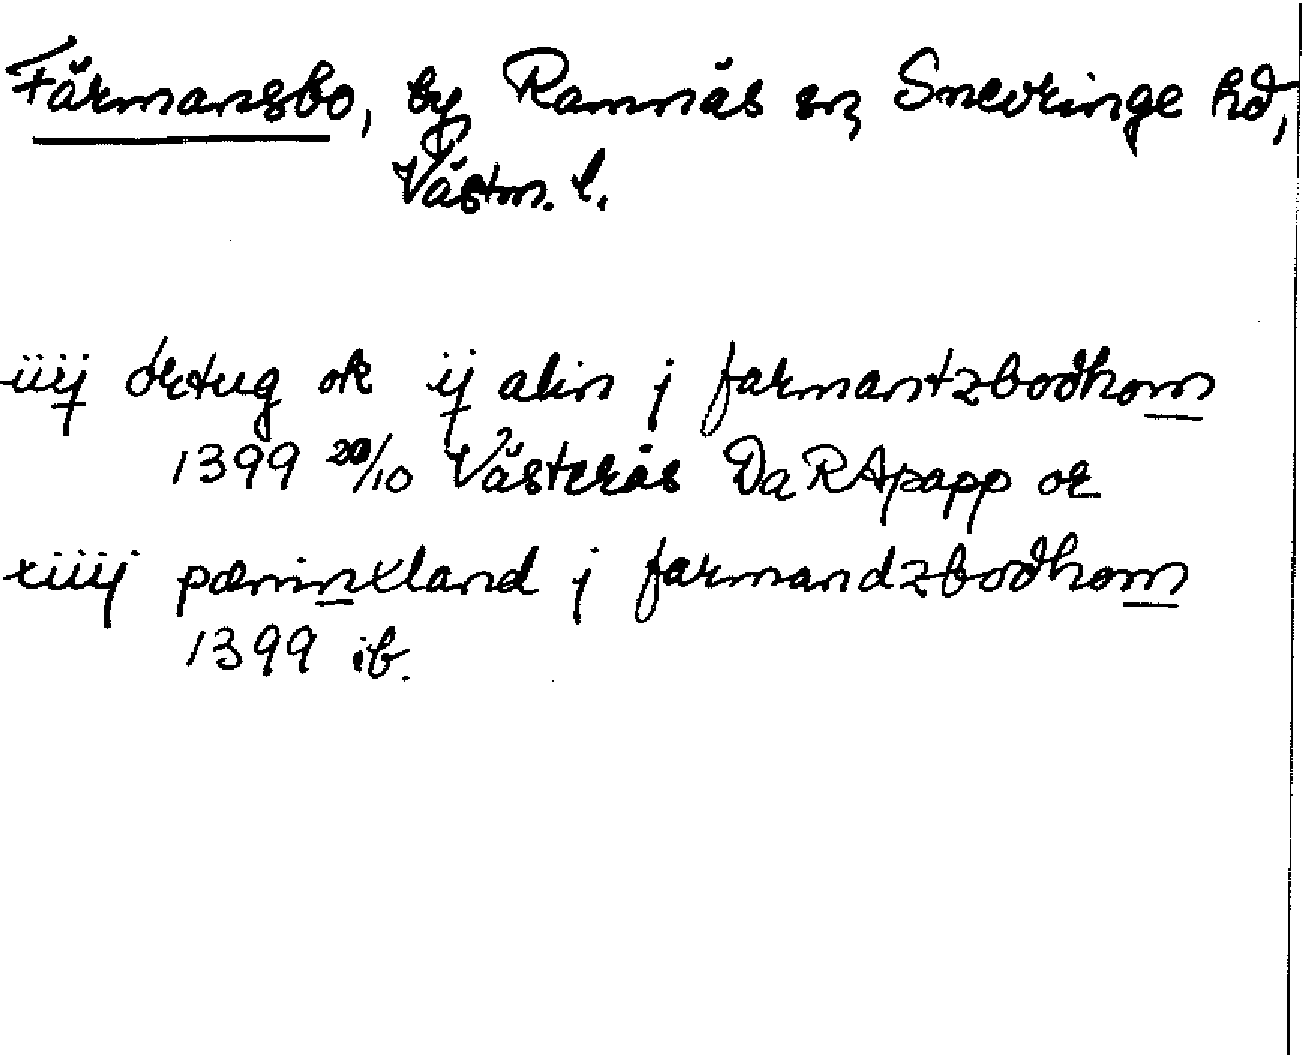 Färmansbo, by Ramnäs sn, Snevringe hd,
Västm. l.
iiij ørtug ok ij alin j farmantzbodhom
1399 20/10 Västerås Da RApapp or
xiiij pæninxland j farmandzbodhom
1399 ib.